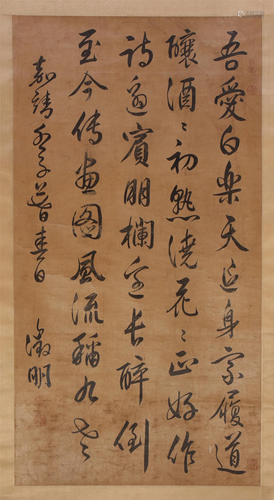 吾愛白樂天退身家履道
釀酒〻初熟澆花〻正好作
詩邀賓朋欄邊長醉倒
至今傳畫圖風流稱九老
嘉靖 子暮春日
徵明